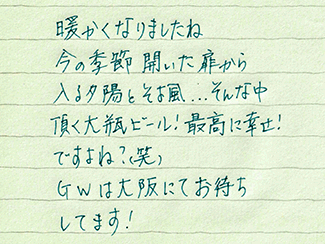 暖かくなりましたね
今の季節 開いた扉から
入る夕陽とそよ風…そんな中
頂く大瓶ビール！最高に幸せ！
ですよね？(笑)
GWは大阪にてお待ち
してます！